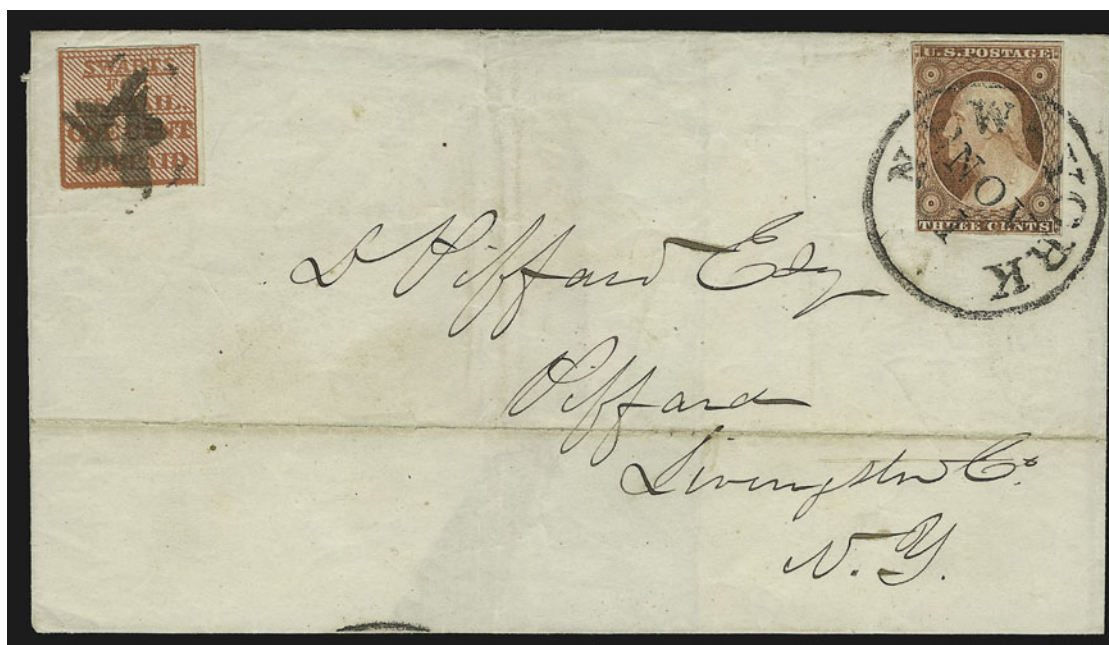 SWARTS
MAIL.
ONE CENT
PREPAID
U.S. POSTAGE
THREE CENTS
NEW YORK
NOV
D Piffard Esq
Piffard
Livingston Co.
N. Y.